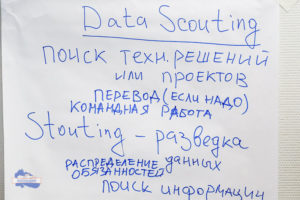 Data Scouting
ПОИСК ТЕХН. РЕШЕНИЙ
или ПРОЕКТОВ
ПЕРЕВОД (ЕСЛИ НАДО)
КОМАНДНАЯ РАБОТА
Stouting – разведка
данных
РАСПРЕДЕЛЕНИЕ
ОБЯЗАННОСТЕЙ
ПОИСК ИНФОРМАЦИИ